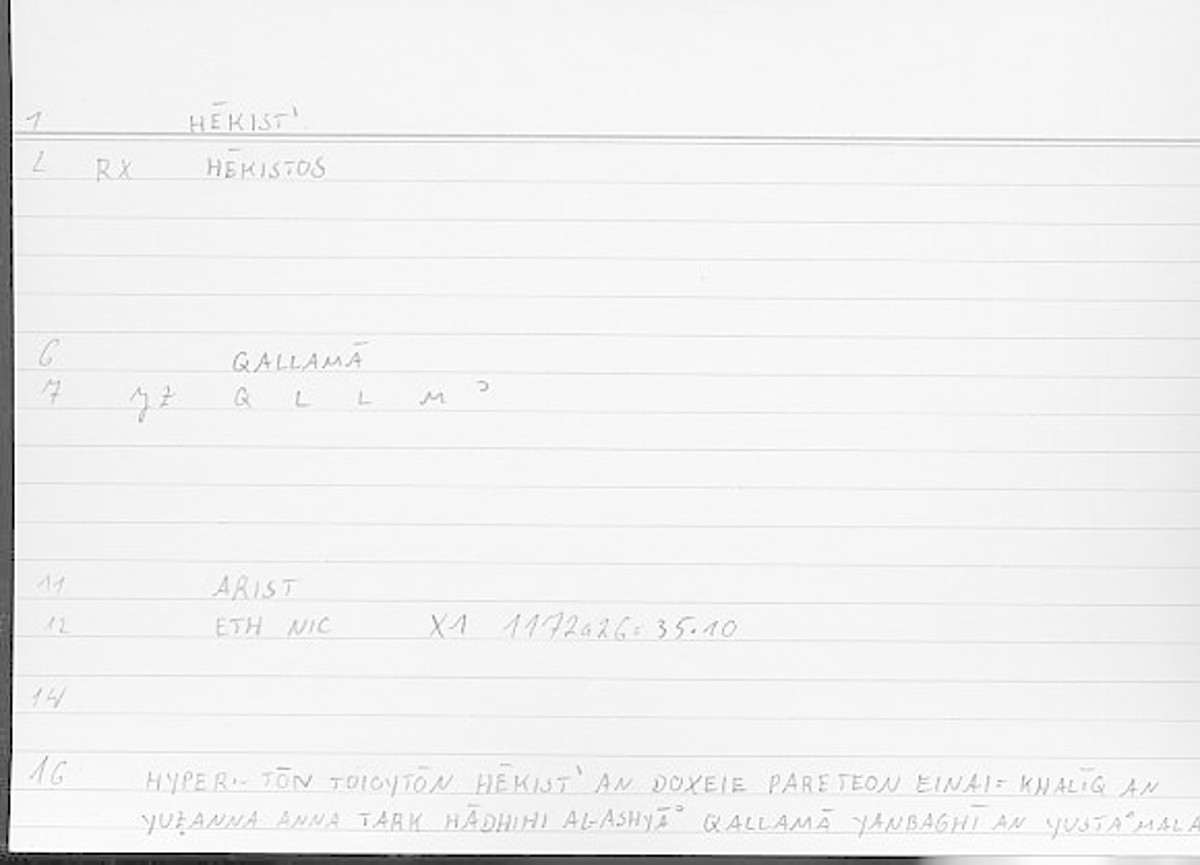 1 HĒKIST'
2 RX HĒKISTOS
6 QALLAMĀ
7 yz Q L L M ʾ
11 ARIST
12 ETH NIC X1 1172a26= 35.10
14
16 HYPER.. TŌN TOIOYTŌN HĒKIST' AN DOXEIE PARETEON EINAI= KHALĪQ AN
YUẒANNA ANNA TARK HĀDHIHI AL-ASHYĀʾ QALLAMĀ YANBAGHĪ AN YUSTAʿMALA